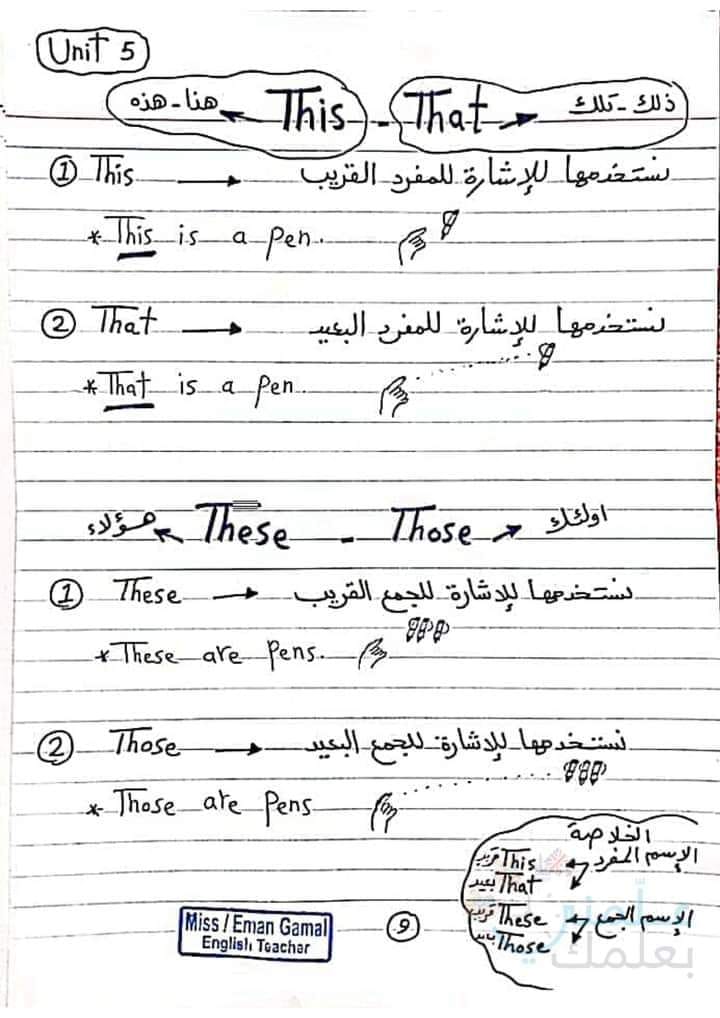 Unit 5
هنا - هذه ← This - That → ذلك - تلك
① This → نستخدمها للإشارة للمفرد القريب
* This is a pen.
② That → نستخدمها للإشارة للمفرد البعيد
* That is a pen.
هؤلاء ← These - Those → اولئك
① These → نستخدمها للإشارة للجمع القريب
* These are pens.
② Those → نستخدمها للإشارة للجمع البعيد
* Those are pens
الخلاصة
الإسم المفرد
This قريب
That بعيد
الإسم الجمع
These قريب
Those بعيد
Miss / Eman Gamal
English Teacher
9
بعلمك